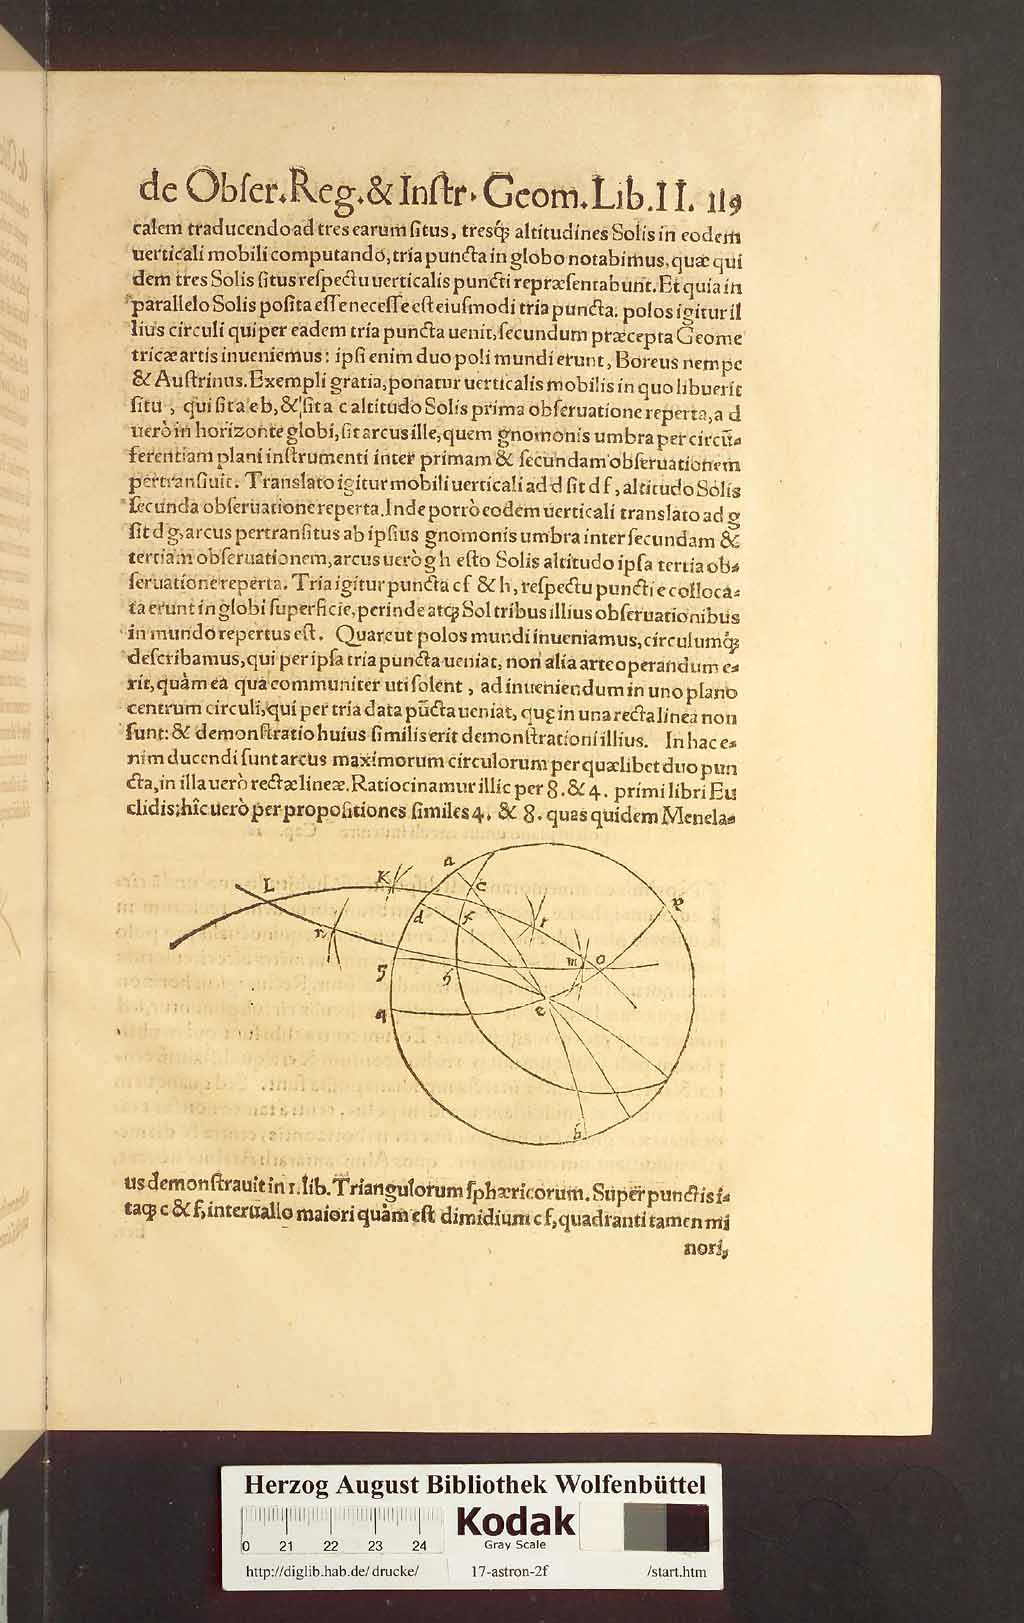 de Obſer. Reg. & Inſtr. Geom. Lib. II. 119
calem traducendo ad tres earum ſitus, tresq́; altitudines Solis in eodem
uerticali mobili computando, tria puncta in globo notabimus, quæ qui
dem tres Solis ſitus reſpectu uerticalis puncti repræſentabunt. Et quia in
parallelo Solis poſita eſſe neceſſe eſt eiuſmodi tria puncta: polos igitur il
lius circuli qui per eadem tria puncta uenit, ſecundum præcepta Geome
tricæ artis inueniemus: ipſi enim duo poli mundi erunt, Boreus nempe
& Auſtrinus. Exempli gratia, ponatur uerticalis mobilis in quo libuerit
ſitu, qui ſit a e b, & ſit a c altitudo Solis prima obſeruatione reperta, a d
uerò in horizonte globi, ſit arcus ille, quem gnomonis umbra per circũ-
ferentiam plani inſtrumenti inter primam & ſecundam obſeruationem
pertranſiuit. Translato igitur mobili uerticali ad d ſit d f, altitudo Solis
ſecunda obſeruatione reperta. Inde porrò eodem uerticali translato ad g
ſit d g, arcus pertranſitus ab ipſius gnomonis umbra inter ſecundam &
tertiam obſeruationem, arcus uerò g h eſto Solis altitudo ipſa tertia ob-
ſeruatione reperta. Tria igitur puncta c f & h, reſpectu puncti e colloca-
ta erunt in globi ſuperficie, perinde atq; Sol tribus illius obſeruationibus
in mundo repertus eſt. Quare ut polos mundi inueniamus, circulumq́;
deſcribamus, qui per ipſa tria puncta ueniat, non alia arte operandum e-
rit, quàm ea qua communiter uti ſolent, ad inueniendum in uno plano
centrum circuli, qui per tria data pũcta ueniat, quę in una recta linea non
ſunt: & demonſtratio huius ſimilis erit demonſtrationi illius. In hac e-
nim ducendi ſunt arcus maximorum circulorum per quælibet duo pun
cta, in illa uerò rectæ lineæ. Ratiocinamur illic per 8. & 4. primi libri Eu
clidis: hîc uerò per propoſitiones ſimiles 4. & 8. quas quidem Menela-
a
L
K
c
p
d
f
r
n
m
o
g
h
q
e
b
us demonſtrauit in 1. lib. Triangulorum ſphæricorum. Super punctis i-
taq; c & f, interuallo maiori quàm eſt dimidium c f, quadranti tamen mi
nori,
Herzog August Bibliothek Wolfenbüttel
0 21 22 23 24
Kodak
Gray Scale
http://diglib.hab.de/drucke/ 17-astron-2f /start.htm